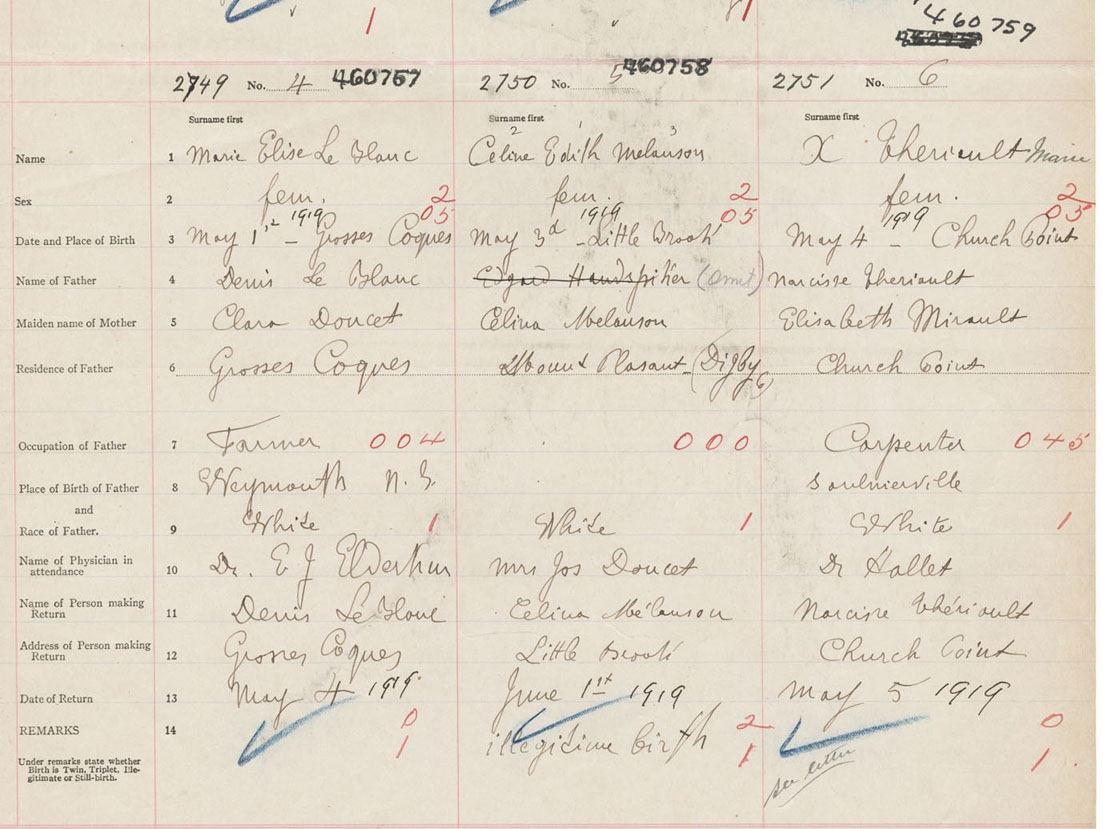 1
1
460759
2749 No. 4 460757 2750 No. 5 460758 2751 No. 6
Surname first Surname first Surname first
2 1 3
Name 1 Marie Elise Le Blanc Celine Edith Melanson X Theriault Marie
Sex 2 fem. 2 fem. 2 fem. 2
1919 05 1919 05 1919 05
Date and Place of Birth 3 May 1st - Grosses Coques May 3d - Little Brook May 4 - Church Point
Name of Father 4 Denis Le Blanc Edgard Handspiker (omit) Narcisse Theriault
Maiden name of Mother 5 Clara Doucet Celina Melanson Elisabeth Mirault
Residence of Father 6 Grosses Coques Mount Plasant - (Digby Church Point
Occupation of Father 7 Farmer 004 000 Carpenter 045
Place of Birth of Father 8 Weymouth N.S. Saulnierville
and
Race of Father. 9 White 1 White 1 White 1
Name of Physician in
attendance 10 Dr. E J Elderkin Mrs Jos Doucet Dr Hallet
Name of Person making
Return 11 Denis Le Blanc Celina Mélanson Narcisse Thériault
Address of Person making
Return 12 Grosses Coques Little Brook Church Point
Date of Return 13 May 4 1919 June 1st 1919 May 5 1919
REMARKS 14 0 illegitime birth 2 0
1 1 1
Under remarks state whether
Birth is Twin, Triplet, Ille-
gitimate or Still-birth.
see letter